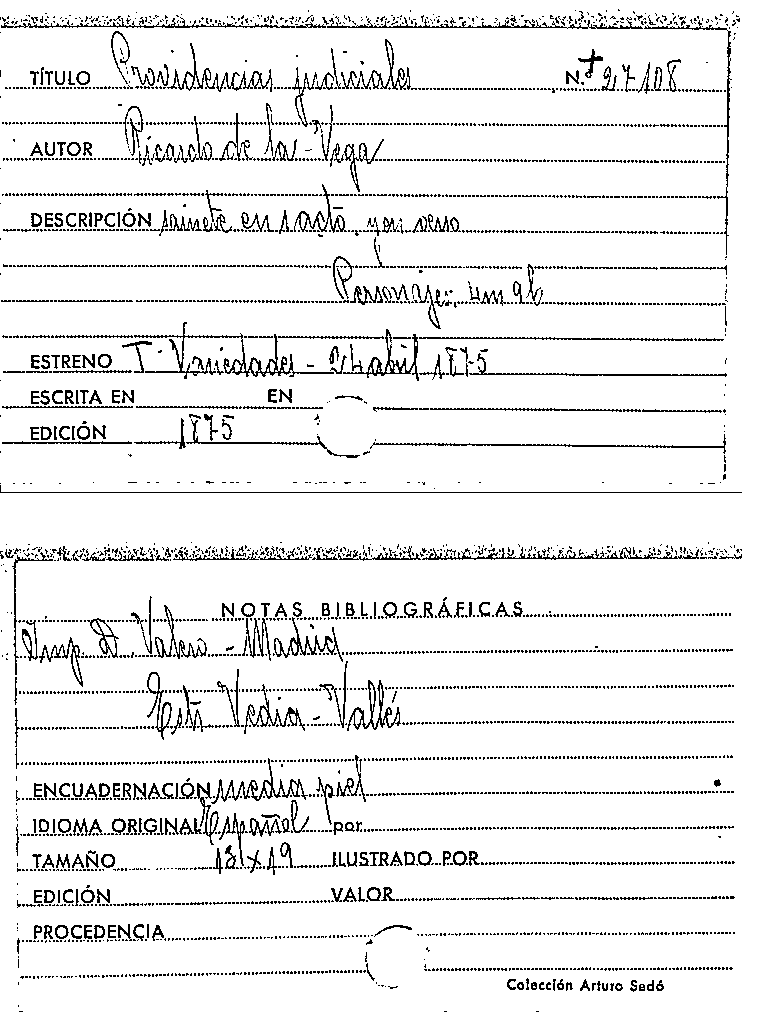 TÍTULO Providencias judiciales N.º 27108
AUTOR Ricardo de la Vega
DESCRIPCIÓN sainete en 1 acto, y en verso
Personajes, 4m 9h
ESTRENO T. Variedades - 24 abril 1875
ESCRITA EN EN
EDICIÓN 1875
NOTAS BIBLIOGRÁFICAS
Imp D. Valero - Madrid
Vedia - Vallés
ENCUADERNACIÓN media piel
IDIOMA ORIGINAL Español por
TAMAÑO 13 x 19 ILUSTRADO POR
EDICIÓN VALOR
PROCEDENCIA
Colección Arturo Sedó